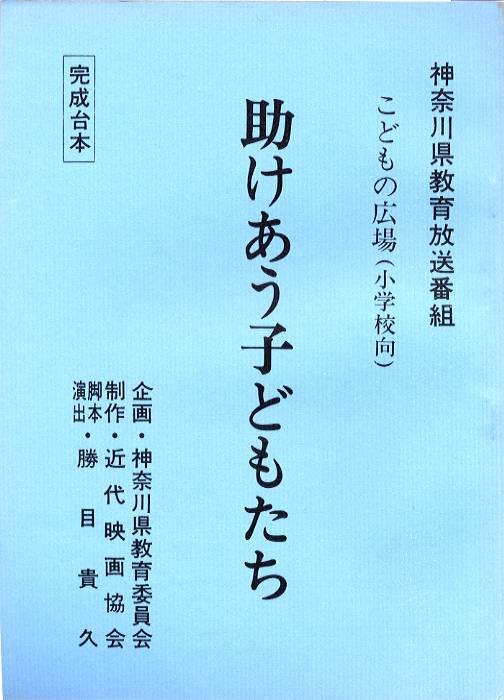 神奈川県教育放送番組
こどもの広場(小学校向)
助けあう子どもたち
完成台本
企画・神奈川県教育委員会
制作・近代映画協会
脚本
演出・勝目貴久